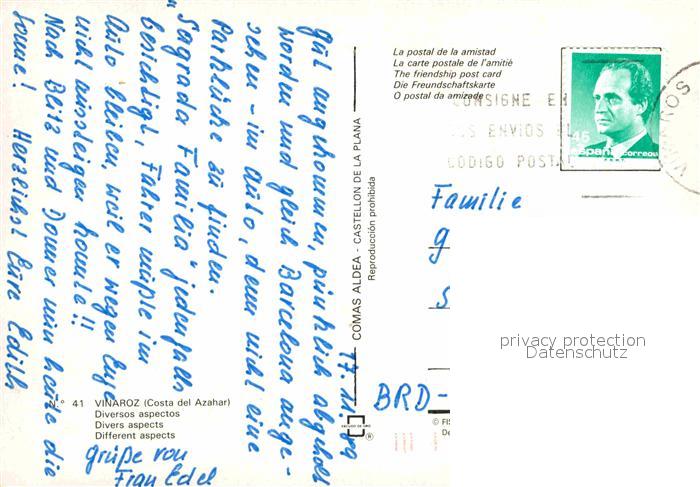 La postal de la amistad
La carte postale de l'amitié
The friendship post card
Die Freundschaftskarte
O postal da amizade
CONSIGNE EN
SUS ENVIOS EL
CODIGO POSTAL
VINAROS
45
españa correos
17.11.89
Gut angekommen, pünktlich abgeholt
worden und gleich Barcelona ange-
sehen - im Auto, denn nicht eine
Parklücke zu finden.
"Sagrada Familia" jedenfalls
besichtigt, Fahrer müßte im
Auto bleiben, weil er wegen Enge
nicht aussteigen konnte!!
Nach Blitz und Donner nun heute die
Sonne! Herzlichst Eure Edith
Grüße von
Frau Edel
COMAS ALDEA - CASTELLON DE LA PLANA
Reproducción prohibida
Familie
G
S
BRD-
privacy protection
Datenschutz
N.º 41 VINAROZ (Costa del Azahar)
Diversos aspectos
Divers aspects
Different aspects
ESCUDO DE ORO
®
© FIS
De